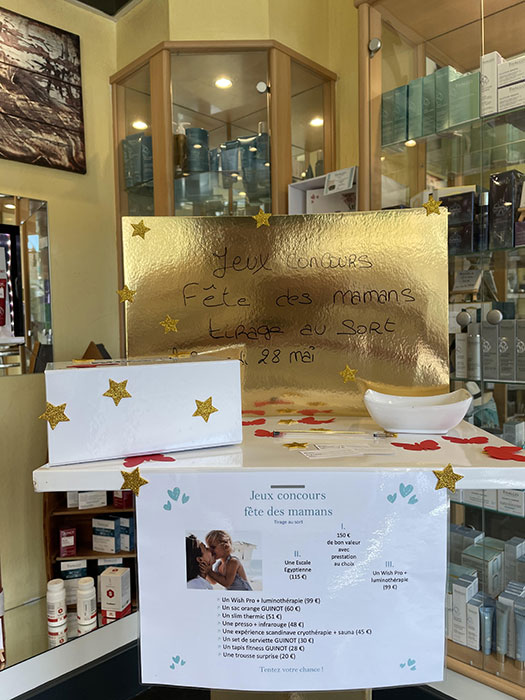 Jeux concours
Fête des mamans
tirage au sort
28 mai
Jeux concours
fête des mamans
Tirage au sort
I.
150 €
de bon valeur
avec
prestation
au choix
II.
Une Escale
Egyptienne
(115 €)
III.
Un Wish Pro +
luminothérapie
(99 €)
Un Wish Pro + luminothérapie (99 €)
Un sac orange GUINOT (60 €)
Un slim thermic (51 €)
Une presso + infrarouge (48 €)
Une expérience scandinave cryothérapie + sauna (45 €)
Un set de serviette GUINOT (30 €)
Un tapis fitness GUINOT (28 €)
Une trousse surprise (20 €)
Tentez votre chance !